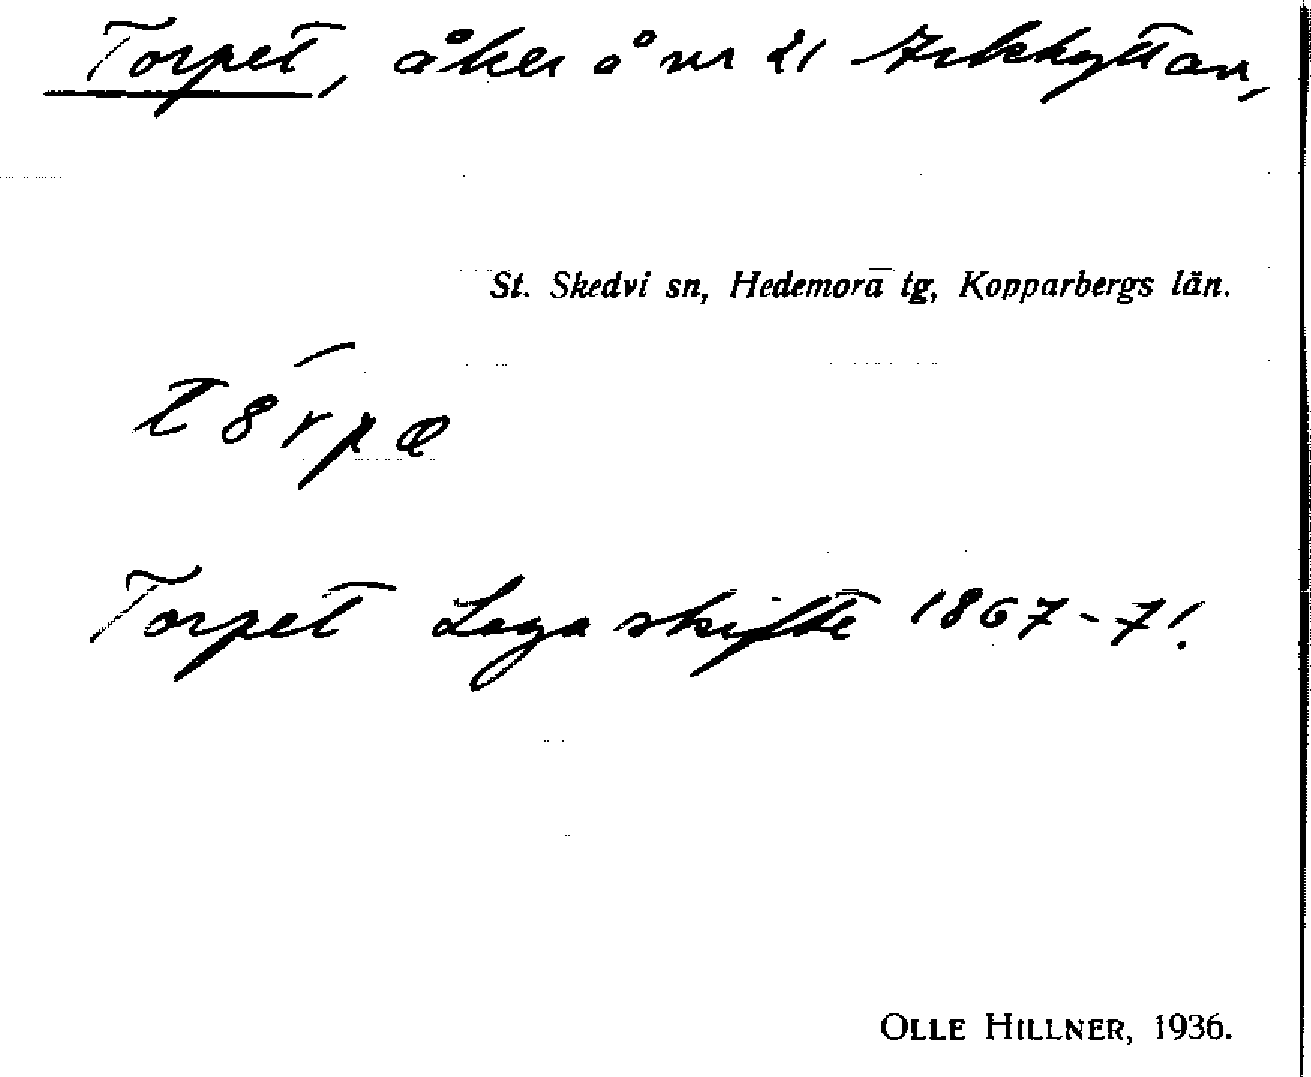 Torpet, åker å nr 21 Arkhyttan,
St. Skedvi sn, Hedemora tg, Kopparbergs län.
Torpet Laga skifte 1867-71.
OLLE HILLNER, 1936.